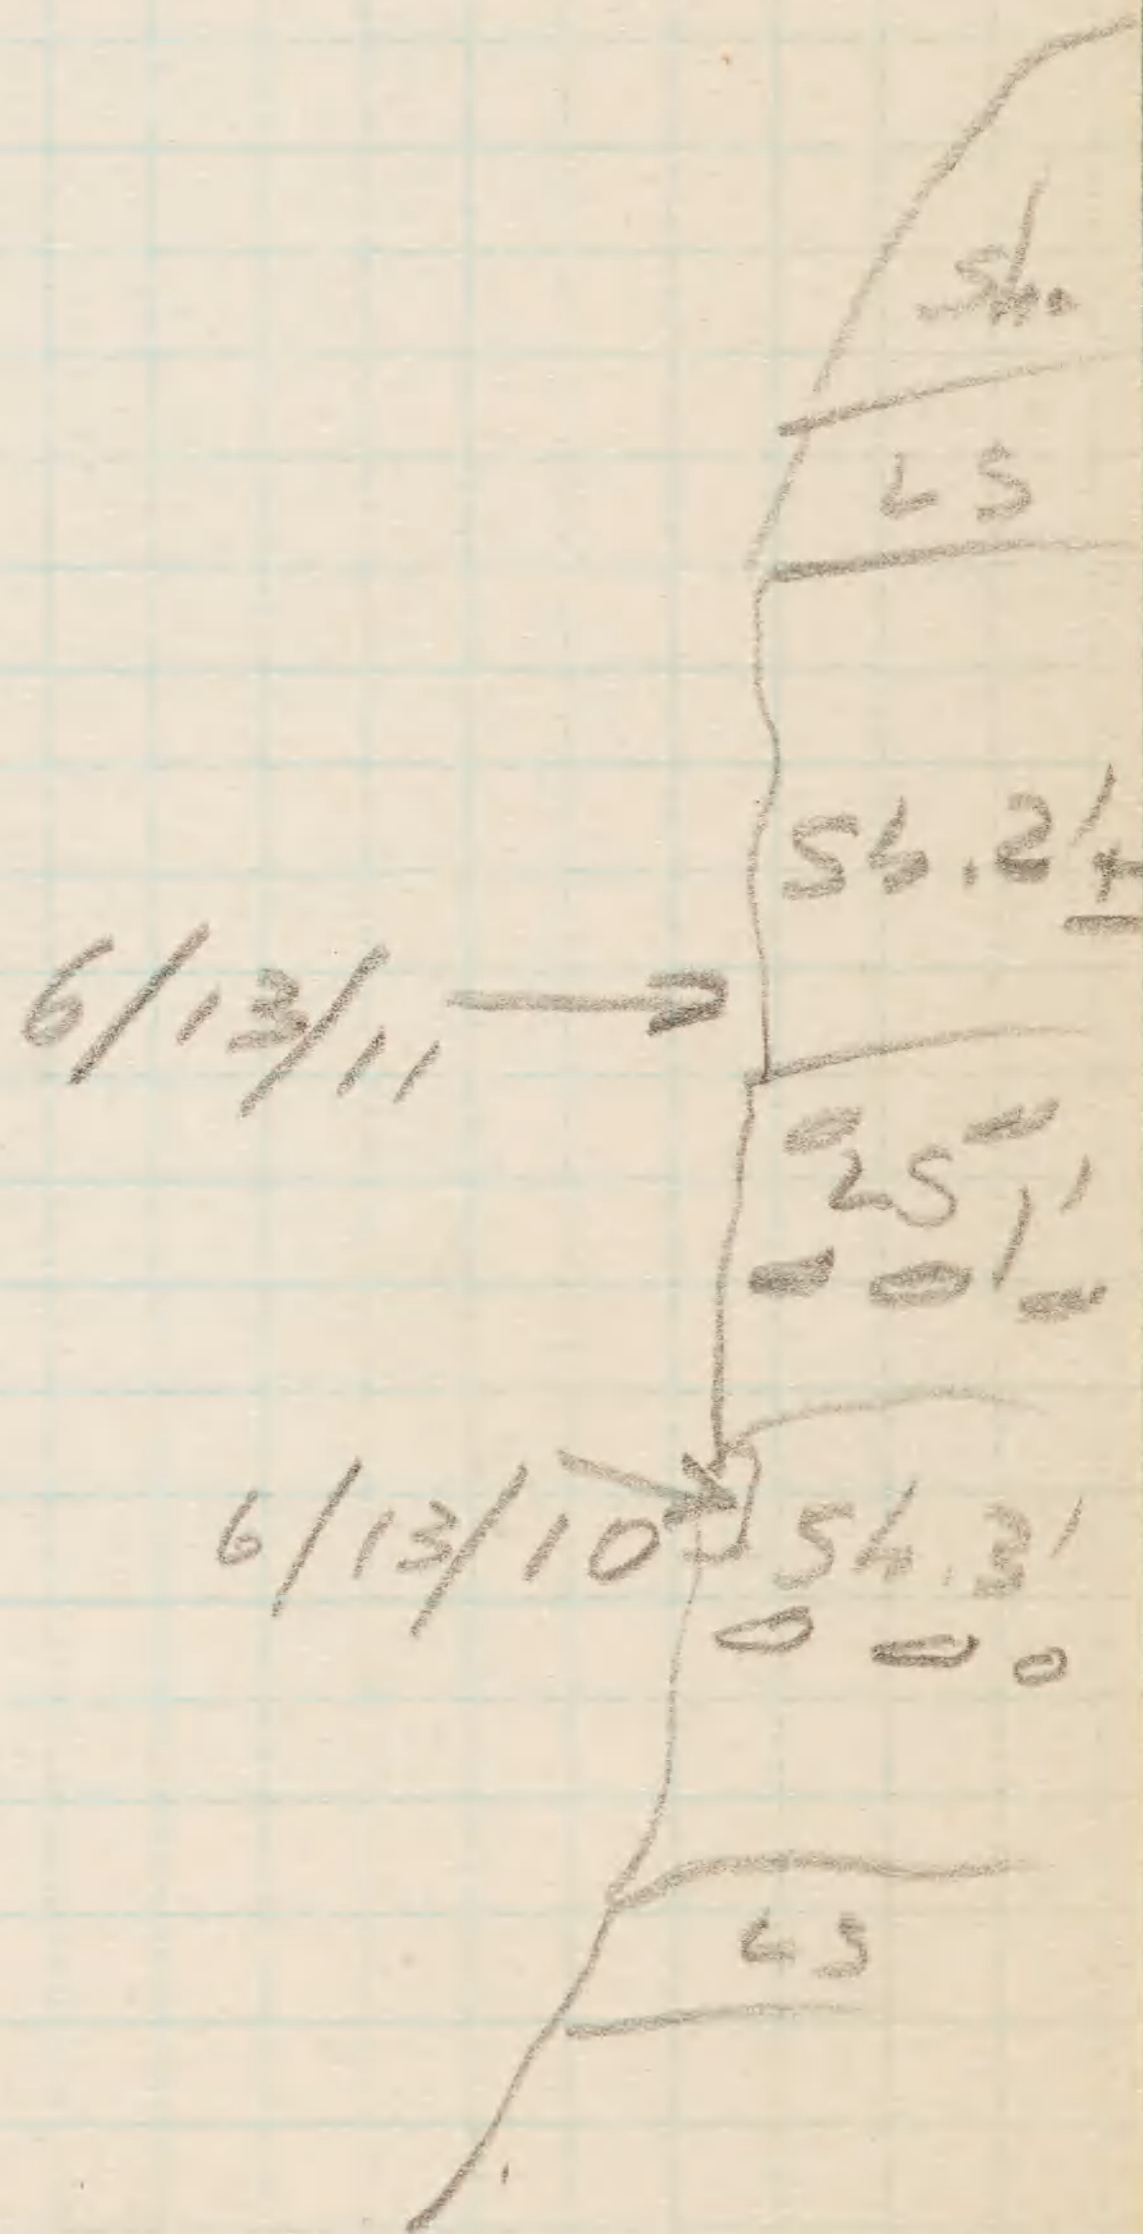 Sh.
LS
Sh. 2'±
6/13/11
LS 1'
6/13/10
Sh. 3'
LS